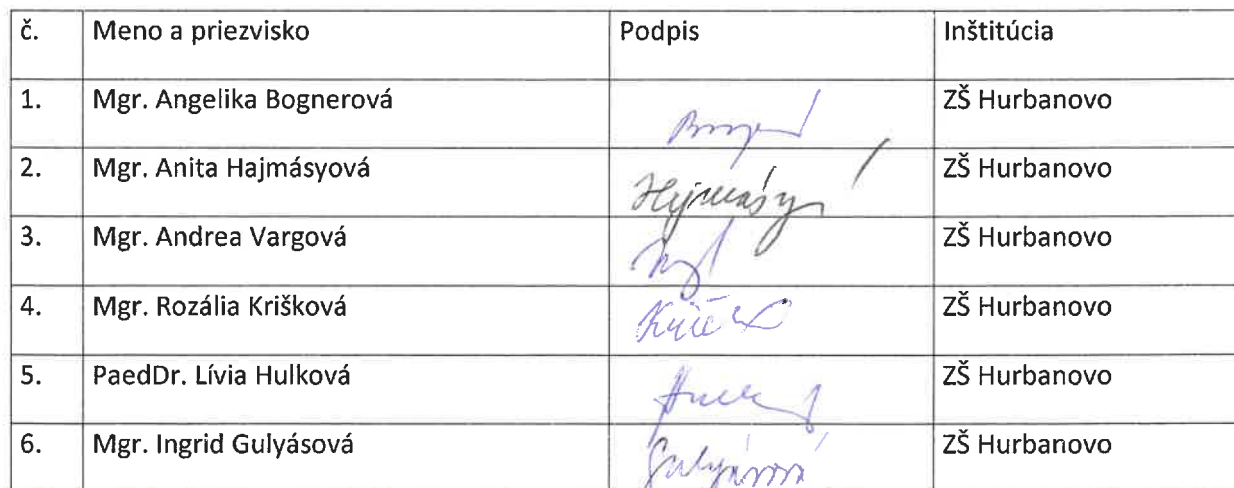 č. Meno a priezvisko Podpis Inštitúcia
1. Mgr. Angelika Bognerová ZŠ Hurbanovo
2. Mgr. Anita Hajmásyová Hajmásyová ZŠ Hurbanovo
3. Mgr. Andrea Vargová ZŠ Hurbanovo
4. Mgr. Rozália Krišková ZŠ Hurbanovo
5. PaedDr. Lívia Hulková ZŠ Hurbanovo
6. Mgr. Ingrid Gulyásová Gulyásová ZŠ Hurbanovo